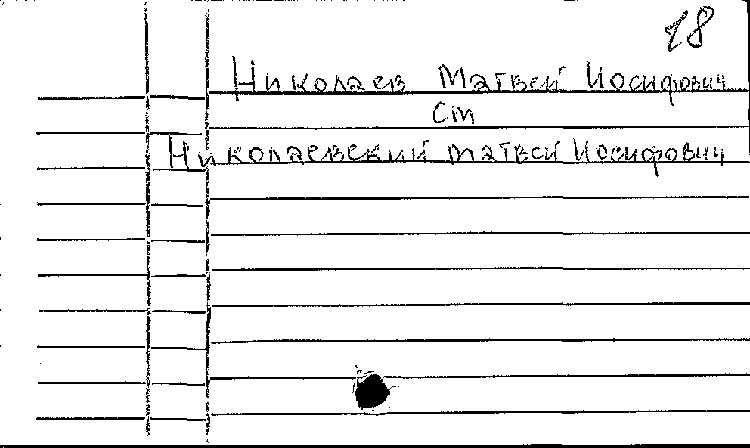 18
Николаев Матвей Иосифович
Cm
Николаевский Матвей Иосифович